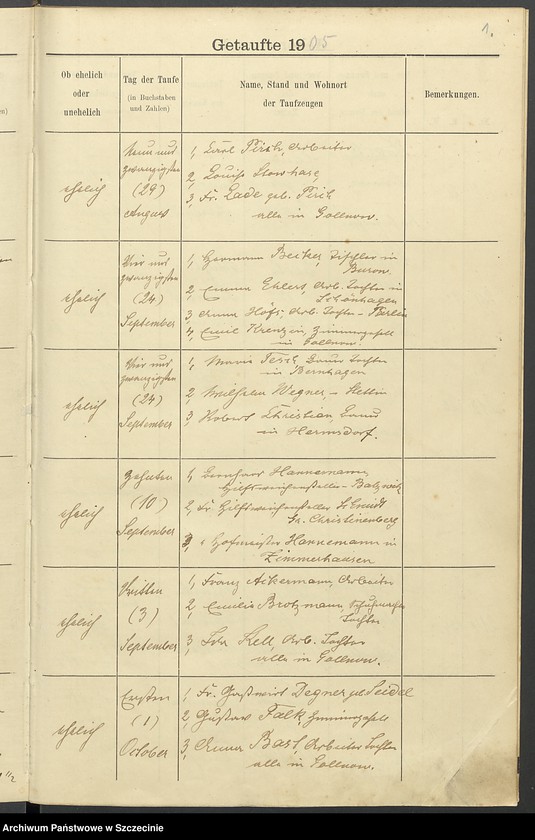 1.
Getaufte 1905
Ob ehelich
oder
unehelich
Tag der Taufe
(in Buchstaben
und Zahlen)
Name, Stand und Wohnort
der Taufzeugen
Bemerkungen.
ehelich
Neun und
zwanzigsten
(29)
August
1, Carl Pirch, Arbeiter
2, Louise
3, Fr. Lade geb. Pirch
alle in Gollnow.
ehelich
Vier und
zwanzigsten
(24)
September
1, Hermann Beitzel, Tischler in
2, Emma Ehlers, Arb. Tochter in
Schönhagen
3, Anna Höfs, Arb. Tochter - Berlin
4, Emil Krenzin, Zimmergesell
in Gollnow.
ehelich
Vier und
zwanzigsten
(24)
September
1, Marie Tesch, Bauer Tochter
in Bernhagen
2, Wilhelm Wegner - Stettin
3, Robert Christian, Bauer
in Hermsdorf.
ehelich
Zehnten
(10)
September
1, Bernhard Hannemann,
Hilfsweichensteller -
2, Fr. Hilfsweichensteller Schmidt
Gr. Christinenberg
3, " Hofmeister Hannemann in
Zimmerhausen
ehelich
Dritten
(3)
September
1, Franz Ackermann, Arbeiter
2, Emilie Brotzmann,
Tochter
3, Kell, Arb. Tochter
alle in Gollnow.
ehelich
Ersten
(1)
October
1, Fr. Gastwirt Degner geb. Seidel
2, Gustav Falk, Zimmergesell
3, Anna Bast, Arbeiter Tochter
alle in Gollnow.
1/2
Archiwum Państwowe w Szczecinie